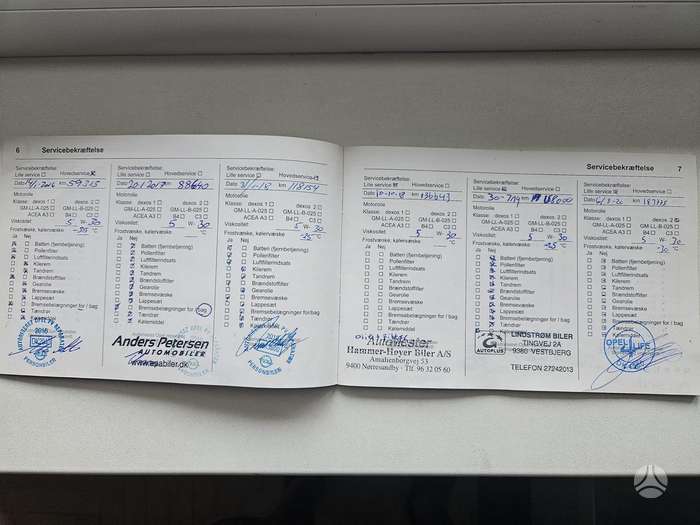 6 Servicebekræftelse
Servicebekræftelse:
Lille service Hovedservice
Dato km 59315
Motorolie
Klasse: dexos 1 dexos 2
GM-LL-A-025 GM-LL-B-025
ACEA A3 B4 C3
Viskositet: 5 W-30
Frostvæske, kølervæske
°C
Ja Nej
Batteri (fjernbetjening)
Pollenfilter
Luftfilterindsats
Kilerem
Tandrem
Brændstoffilter
Gearolie
Bremsevæske
Lappesæt
Bremsebelægninger for / bag
Tændrør
Kølemiddel
Servicebekræftelse:
Lille service Hovedservice
Dato 20/1 2017 km 88640
Motorolie
Klasse: dexos 1 dexos 2
GM-LL-A-025 GM-LL-B-025
ACEA A3 B4 C3
Viskositet: 5 W-30
Frostvæske, kølervæske
°C
Ja Nej
Batteri (fjernbetjening)
Pollenfilter
Luftfilterindsats
Kilerem
Tandrem
Brændstoffilter
Gearolie
Bremsevæske
Lappesæt
Bremsebelægninger for /bag
Tændrør
Kølemiddel
Anders Petersen
AUTOMOBILER
www.epabiler.dk
Servicebekræftelse:
Lille service Hovedservice
Dato 3/1-18 km 118154
Motorolie
Klasse: dexos 1 dexos 2
GM-LL-A-025 GM-LL-B-025
ACEA A3 B4 C3
Viskositet: 5 W-30
Frostvæske, kølervæske
-35 °C
Ja Nej
Batteri (fjernbetjening)
Pollenfilter
Luftfilterindsats
Kilerem
Tandrem
Brændstoffilter
Gearolie
Bremsevæske
Lappesæt
Bremsebelægninger for / bag
Tændrør
Kølemiddel
Servicebekræftelse 7
Servicebekræftelse:
Lille service Hovedservice
Dato 10-10-18 km 136643
Motorolie
Klasse: dexos 1 dexos 2
GM-LL-A-025 GM-LL-B-025
ACEA A3 B4 C3
Viskositet: 5 W-30
Frostvæske, kølervæske
°C
Ja Nej
Batteri (fjernbetjening)
Pollenfilter
Luftfilterindsats
Kilerem
Tandrem
Brændstoffilter
Gearolie
Bremsevæske
Lappesæt
Bremsebelægninger for / bag
Tændrør
Kølemiddel
AutoMester
Hammer-Høyer Biler A/S
Amalienborgvej 53
9400 Nørresundby - Tlf. 96 32 05 60
Servicebekræftelse:
Lille service Hovedservice
Dato 30-7/19 km
Motorolie
Klasse: dexos 1 dexos 2
GM-LL-A-025 GM-LL-B-025
ACEA A3 B4 C3
Viskositet: 5 W-30
Frostvæske, kølervæske
-35 °C
Ja Nej
Batteri (fjernbetjening)
Pollenfilter
Luftfilterindsats
Kilerem
Tandrem
Brændstoffilter
Gearolie
Bremsevæske
Lappesæt
Bremsebelægninger for / bag
Tændrør
AUTOPLUS
LINDSTRØM BILER
TINGVEJ 2A
9380 VESTBJERG
TELEFON 27242013
Servicebekræftelse:
Lille service Hovedservice
Dato km
Motorolie
Klasse: dexos 1 dexos 2
GM-LL-A-025 GM-LL-B-025
ACEA A3 B4 C3
Viskositet: 5 W-30
Frostvæske, kølervæske
-30 °C
Ja Nej
Batteri (fjernbetjening)
Pollenfilter
Luftfilterindsats
Kilerem
Tandrem
Brændstoffilter
Gearolie
Bremsevæske
Lappesæt
Bremsebelægninger for / bag
Tændrør
Kølemiddel
OPEL 4 LIFE